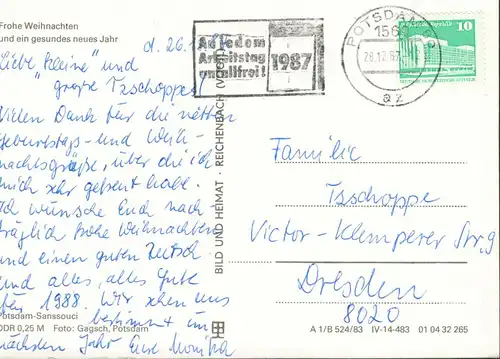 Frohe Weihnachten
und ein gesundes neues Jahr
d. 26.12.87
Liebe "kleine" und
große Tzschoppes!
Vielen Dank für die netten
Geburtstags- und Weih-
nachtsgrüße, über die ich
mich sehr gefreut habe.
Ich wünsche Euch nach-
träglich frohe Weihnachten
und einen guten Rutsch
und alles, alles Gute
für 1988. Wir sehen uns
bestimmt im
nächsten Jahr Eure Monika
Potsdam-Sanssouci
DDR 0,25 M Foto: Gagsch, Potsdam
BILD UND HEIMAT · REICHENBACH (VOGTL)
Auf jedem
Arbeitstag
unfallfrei!
1987
POTSDAM
156
28.12.87
az
10
Familie
Tzschoppe
Victor-Klemperer Str. 9
Dresden
8020
A 1/B 524/83 IV-14-483 01 04 32 265